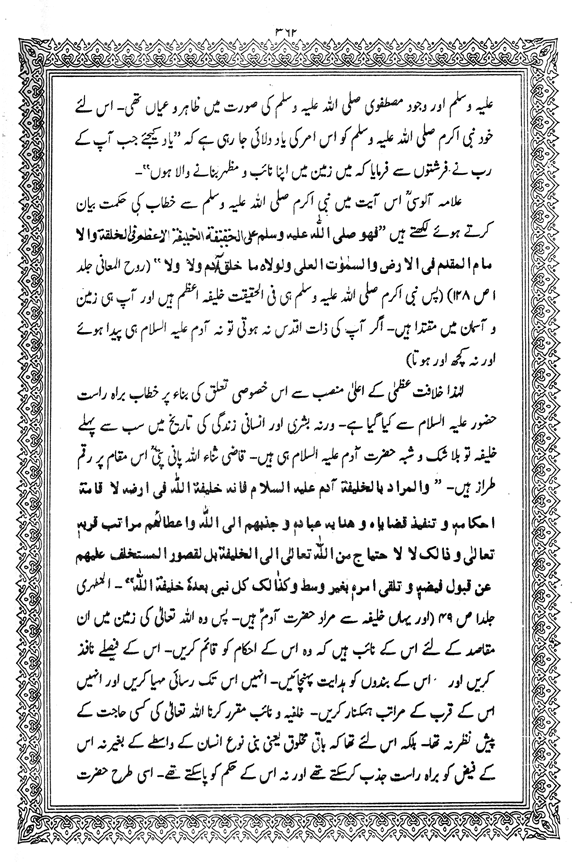 ۳۶۲
علیہ وسلم اور وجود مصطفوی صلی اللہ علیہ وسلم کی صورت میں ظاہر و عیاں تھی۔ اس لئے
خود نبی اکرم صلی اللہ علیہ وسلم کو اس امر کی یاد دلائی جا رہی ہے کہ ”یاد کیجئے جب آپ کے
رب نے فرشتوں سے فرمایا کہ میں زمین میں اپنا نائب و مظہر بنانے والا ہوں“۔
علامہ آلوسیؒ اس آیت میں نبی اکرم صلی اللہ علیہ وسلم سے خطاب کی حکمت بیان
کرتے ہوئے لکھتے ہیں ”فهو صلى الله عليه وسلم على الحقيقة الخليفة الاعظم فى الخلقة والا
مام المقدم فى الارض والسمٰوٰت العلى ولولاه ما خلق آدم ولا ولا“ (روح المعانی جلد
۱ ص ۱۲۸) (پس نبی اکرم صلی اللہ علیہ وسلم ہی فی الحقیقت خلیفہ اعظم ہیں اور آپ ہی زمین
و آسمان میں مقتدا ہیں۔ اگر آپ کی ذات اقدس نہ ہوتی تو نہ آدم علیہ السلام ہی پیدا ہوئے
اور نہ کچھ اور ہوتا)
لہٰذا خلافت عظمیٰ کے اعلیٰ منصب سے اس خصوصی تعلق کی بناء پر خطاب براہ راست
حضور علیہ السلام سے کیا گیا ہے۔ ورنہ بشری اور انسانی زندگی کی تاریخ میں سب سے پہلے
خلیفہ تو بلا شک و شبہ حضرت آدم علیہ السلام ہی ہیں۔ قاضی ثناء اللہ پانی پتیؒ اس مقام پر رقم
طراز ہیں۔ ”والمراد بالخليفة آدم عليه السلام فانه خليفة الله فى ارضه لا قامة
احكامه و تنفيذ قضاياه و هداية عباده و جذبهم الى الله واعطائهم مراتب قربه
تعالىٰ و ذالك لا لا حتياج من الله تعالى الى الخليفة بل لقصور المستخلف عليهم
عن قبول فيضه و تلقى امره بغير وسط وكذالك كل نبى بعده خليفة الله“۔ المظہری
جلد۱ ص ۴۹ (اور یہاں خلیفہ سے مراد حضرت آدمؑ ہیں۔ پس وہ اللہ تعالیٰ کی زمین میں ان
مقاصد کے لئے اس کے نائب ہیں کہ وہ اس کے احکام کو قائم کریں۔ اس کے فیصلے نافذ
کریں اور اس کے بندوں کو ہدایت پہنچائیں۔ انہیں اس تک رسائی مہیا کریں اور انہیں
اس کے قرب کے مراتب ہمکنار کریں۔ خلفیہ و نائب مقرر کرنا اللہ تعالیٰ کی کسی حاجت کے
پیش نظر نہ تھا۔ بلکہ اس لئے تھا کہ باقی مخلوق یعنی بنی نوع انسان کے واسطے کے بغیر نہ اس
کے فیض کو براہ راست جذب کرسکتے تھے اور نہ اس کے حکم کو پاسکتے تھے۔ اسی طرح حضرت